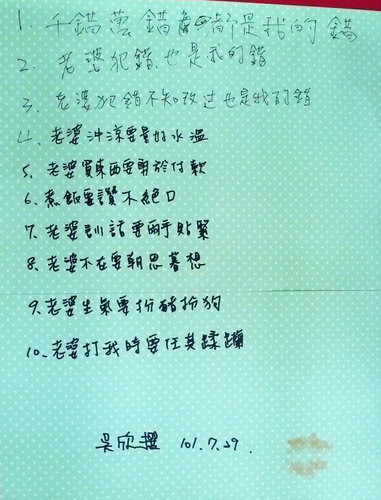 1. 千錯萬錯都是我的錯
2. 老婆犯錯.也是我的錯
3. 老婆犯錯不知改过也是我的錯
4、老婆沖涼要量好水溫
5. 老婆買東西要勇於付款
6. 煮飯要讚不絕口
7、老婆訓話要兩手貼緊
8. 老婆不在要朝思暮想
9. 老婆生氣要扮豬扮狗
10. 老婆打我時要任其蹂躪
吳欣 101.7.29.